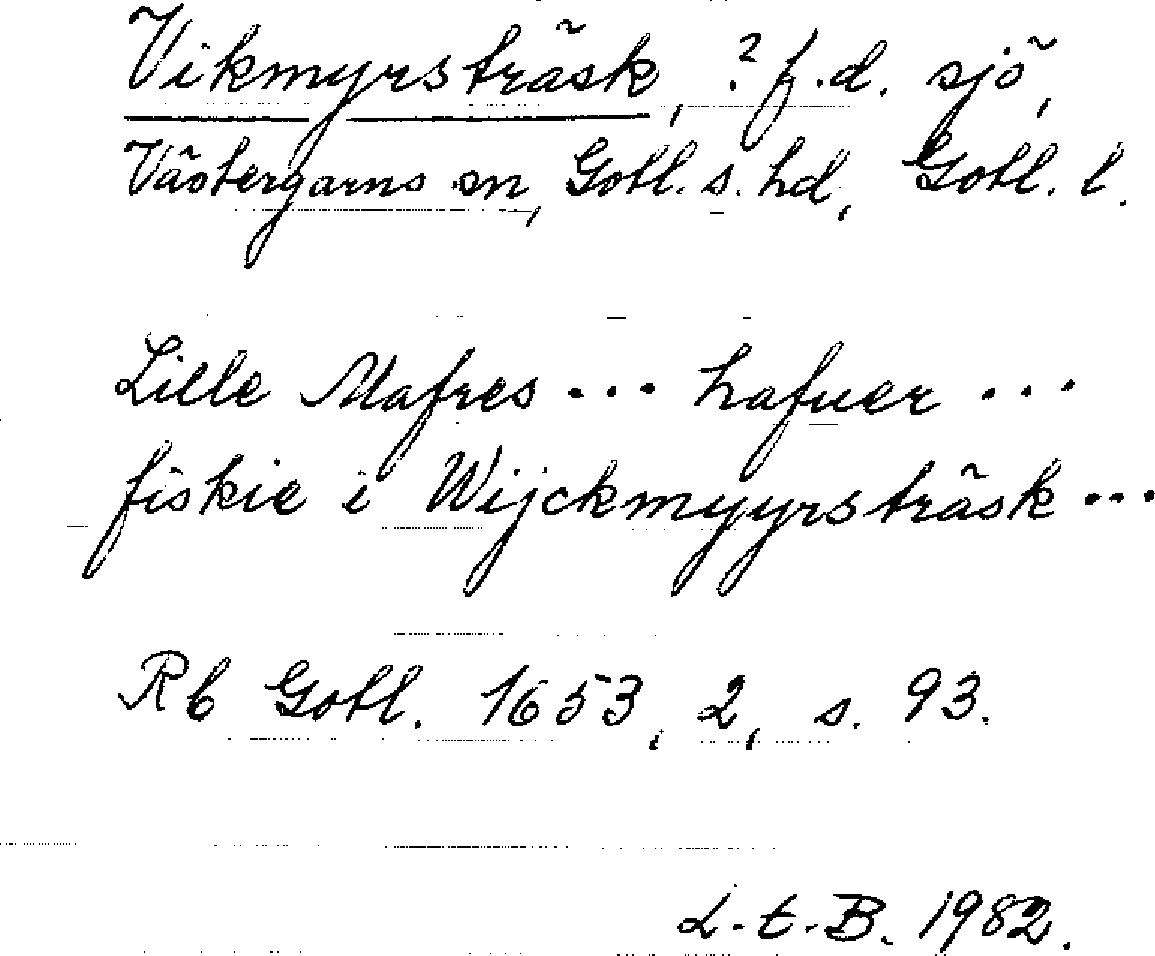 Vikmyrsträsk, ? f.d. sjö,
Västergarns sn, Gotl. s. hd, Gotl. l.
Lille Mafres ... hafuer ...
fiskie i Wijckmyyrsträsk ...
Rb Gotl. 1653, 2, s. 93.
L.t.B. 1982.